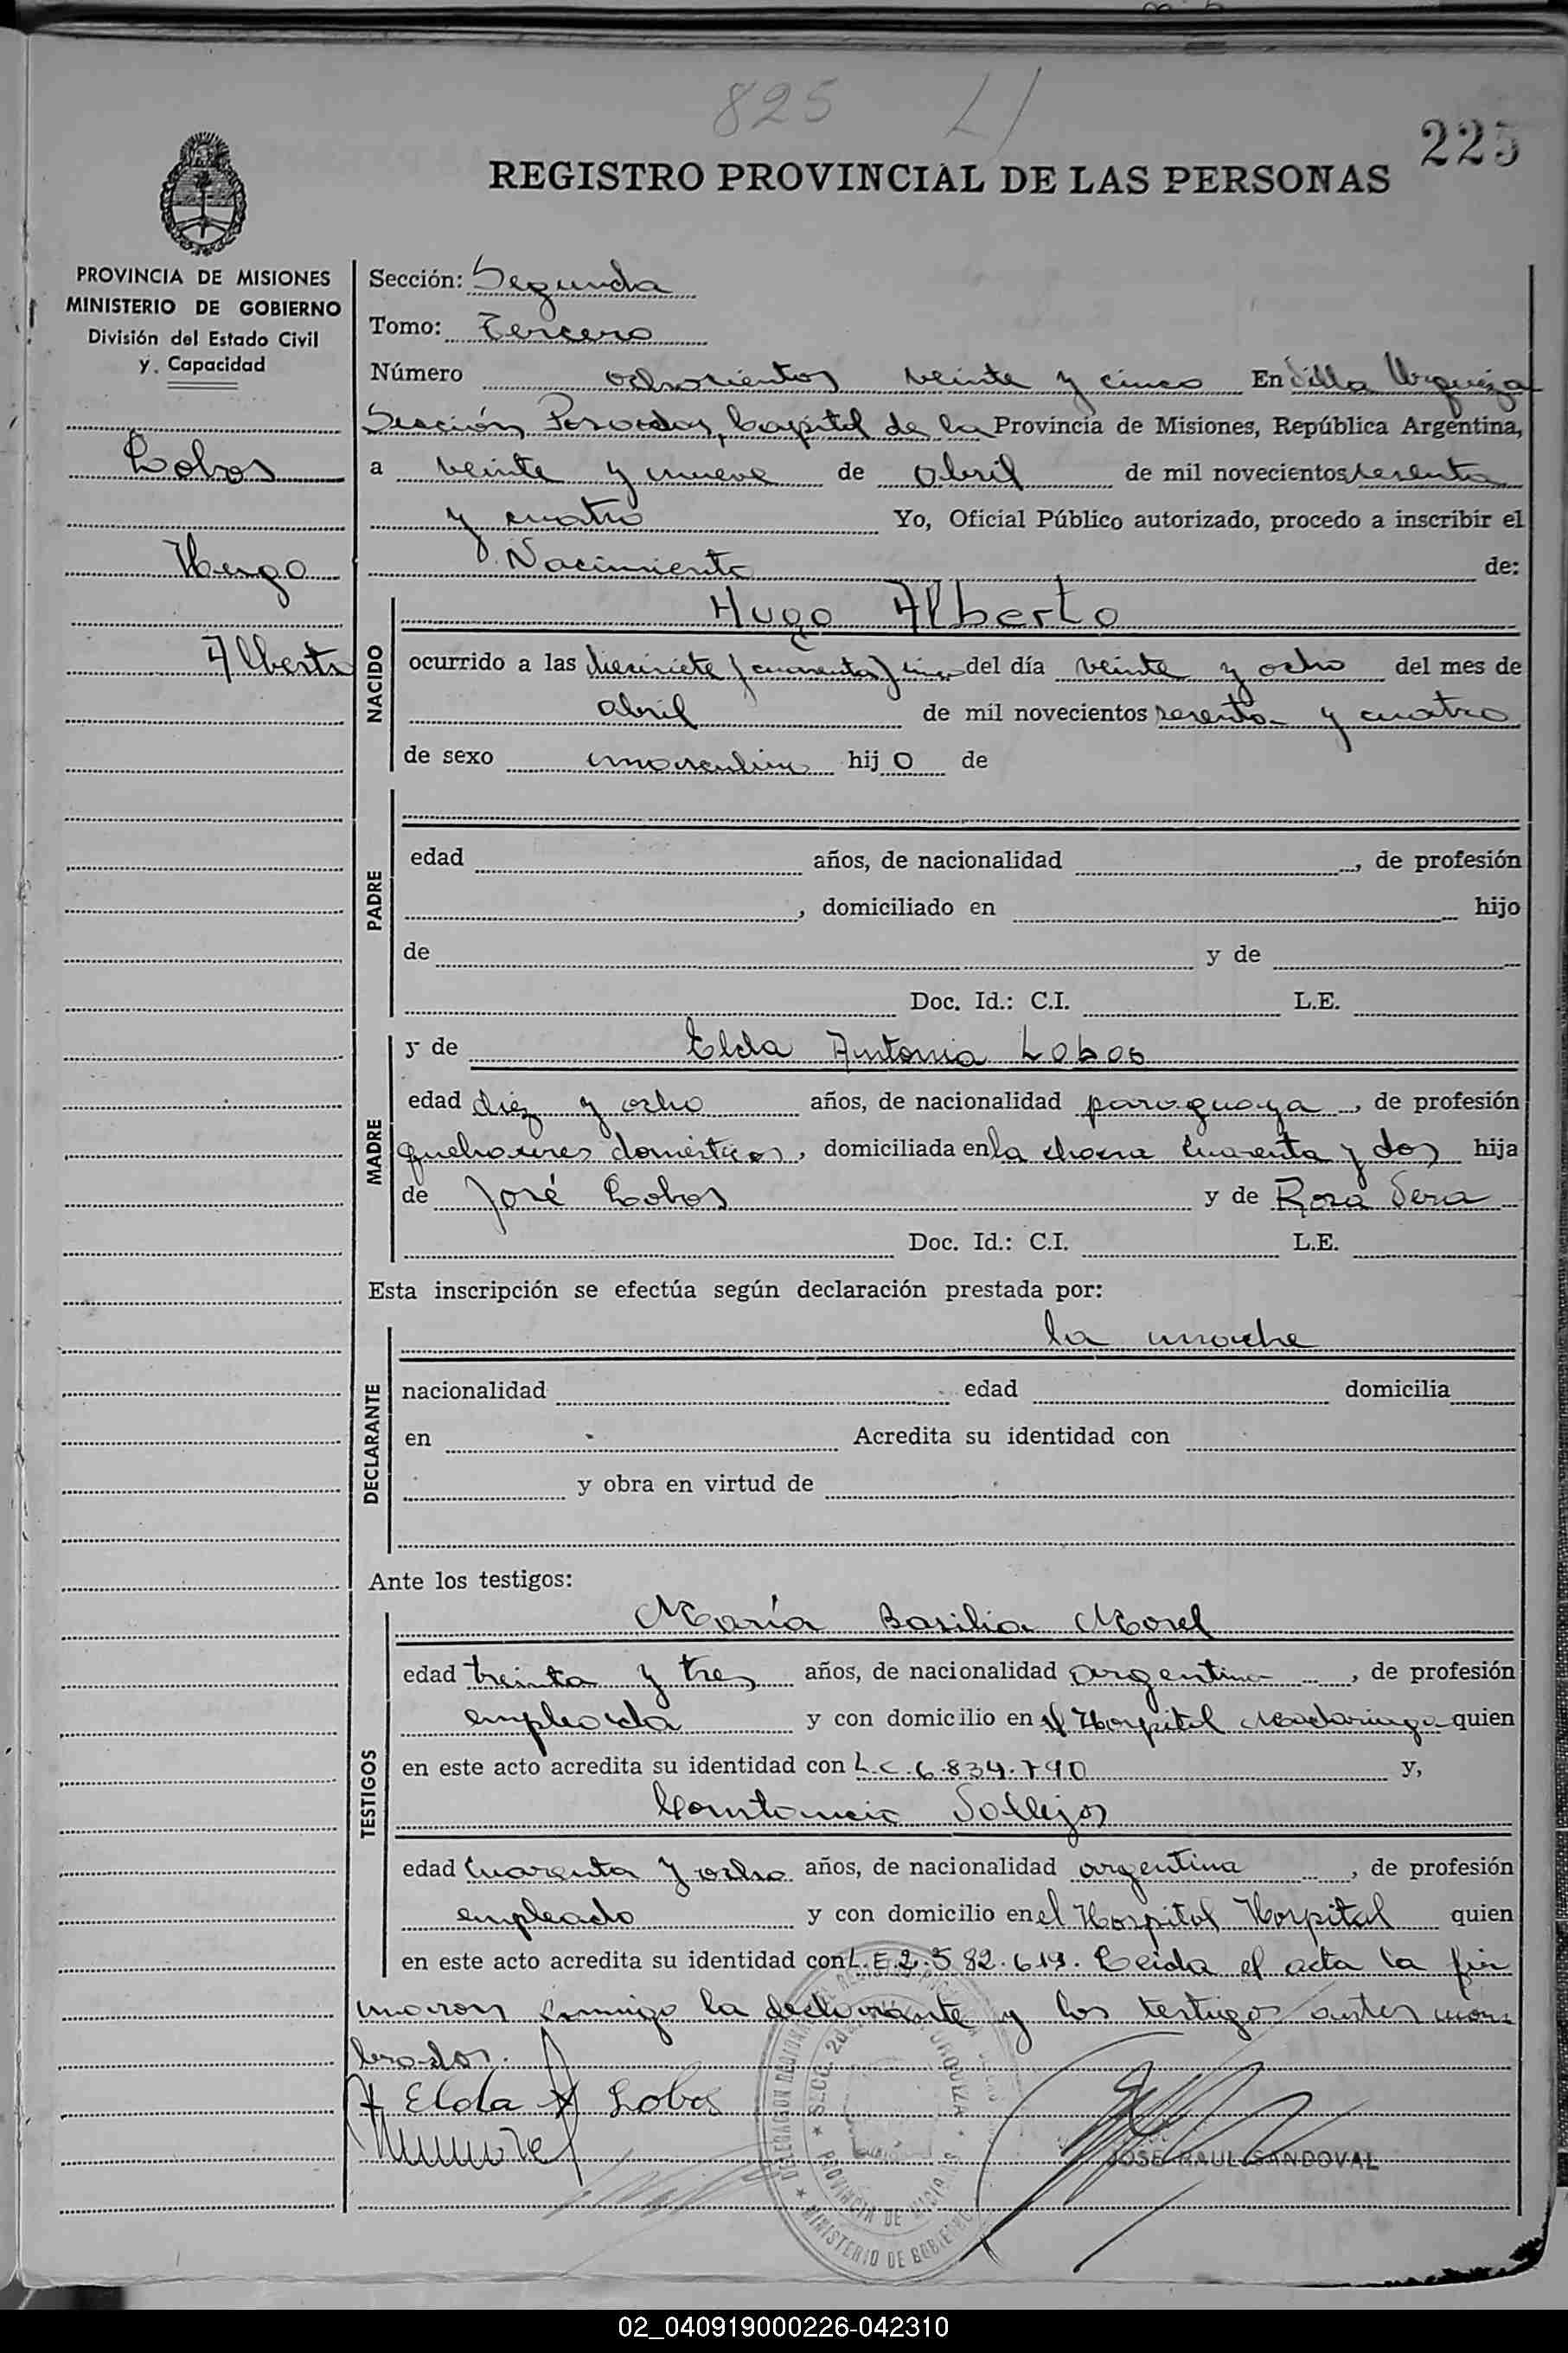 825 L/
225
REGISTRO PROVINCIAL DE LAS PERSONAS
PROVINCIA DE MISIONES
MINISTERIO DE GOBIERNO
División del Estado Civil
y. Capacidad
Lobos
Hugo
Alberto
Sección: Segunda
Tomo: Tercero
Número ochocientos veinte y cinco En Villa Urquiza
Sección Posadas, Capital de la Provincia de Misiones, República Argentina,
a veinte y nueve de abril de mil novecientos sesenta
y cuatro Yo, Oficial Público autorizado, procedo a inscribir el
Nacimiento de:
NACIDO
Hugo Alberto
ocurrido a las diecisiete y cuarenta y cinco del día veinte y ocho del mes de
abril de mil novecientos sesenta y cuatro
de sexo masculino hij o de
PADRE
edad años, de nacionalidad , de profesión
, domiciliado en hijo
de y de
Doc. Id.: C.I. L.E.
MADRE
y de Elda Antonia Lobos
edad diez y ocho años, de nacionalidad paraguaya , de profesión
quehaceres domésticos, domiciliada en la chacra cuarenta y dos hija
de José Lobos y de Rosa Vera
Doc. Id.: C.I. L.E.
Esta inscripción se efectúa según declaración prestada por:
DECLARANTE
la madre
nacionalidad edad domicilia
en Acredita su identidad con
y obra en virtud de
Ante los testigos:
TESTIGOS
María Basilia Morel
edad treinta y tres años, de nacionalidad argentina , de profesión
empleada y con domicilio en el Hospital Madariaga quien
en este acto acredita su identidad con L.C. 6.834.790 y,
Constancio Vallejos
edad cuarenta y ocho años, de nacionalidad argentina , de profesión
empleado y con domicilio en el Hospital Hospital quien
en este acto acredita su identidad con L.E. 2.582.619. Leida el acta la fir
maron conmigo la declarante y los testigos antes nom
brados.
Elda A Lobos
DELEGACION REGIONAL DEL REGISTRO
SECC. 2da. URQUIZA
PROVINCIA DE MISIONES
MINISTERIO DE GOBIERNO
JOSE RAUL SANDOVAL
02_040919000226-042310